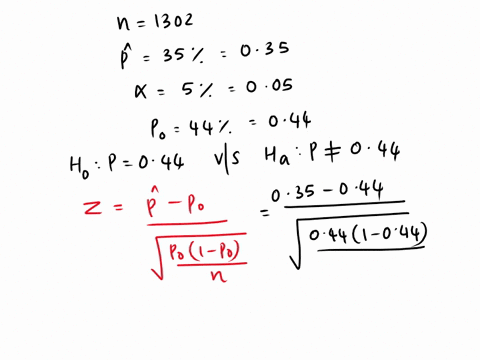 n = 1302
p̂ = 35% = 0.35
α = 5% = 0.05
P₀ = 44% = 0.44
H₀ : P = 0.44 v/s Ha : P ≠ 0.44
Z = p̂ - P₀ / √(P₀(1-P₀) / n) = 0.35 - 0.44 / √(0.44(1-0.44))